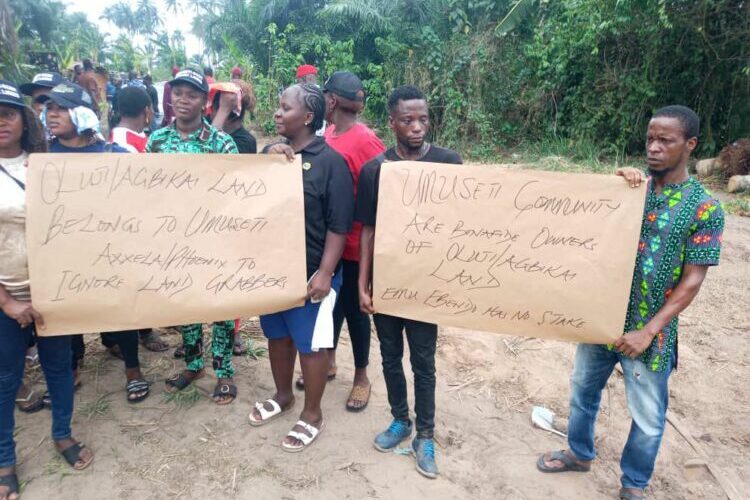 OLUJI/AGBIKAI LAND
BELONGS TO UMUSETI
AXXELA/PHOENIX TO
IGNORE LAND GRABBERS
UMUSETI COMMUNITY
ARE BONAFIDE OWNERS
OF OLUJI/AGBIKAI
LAND
EMU EBENDO HAS NO STAKE